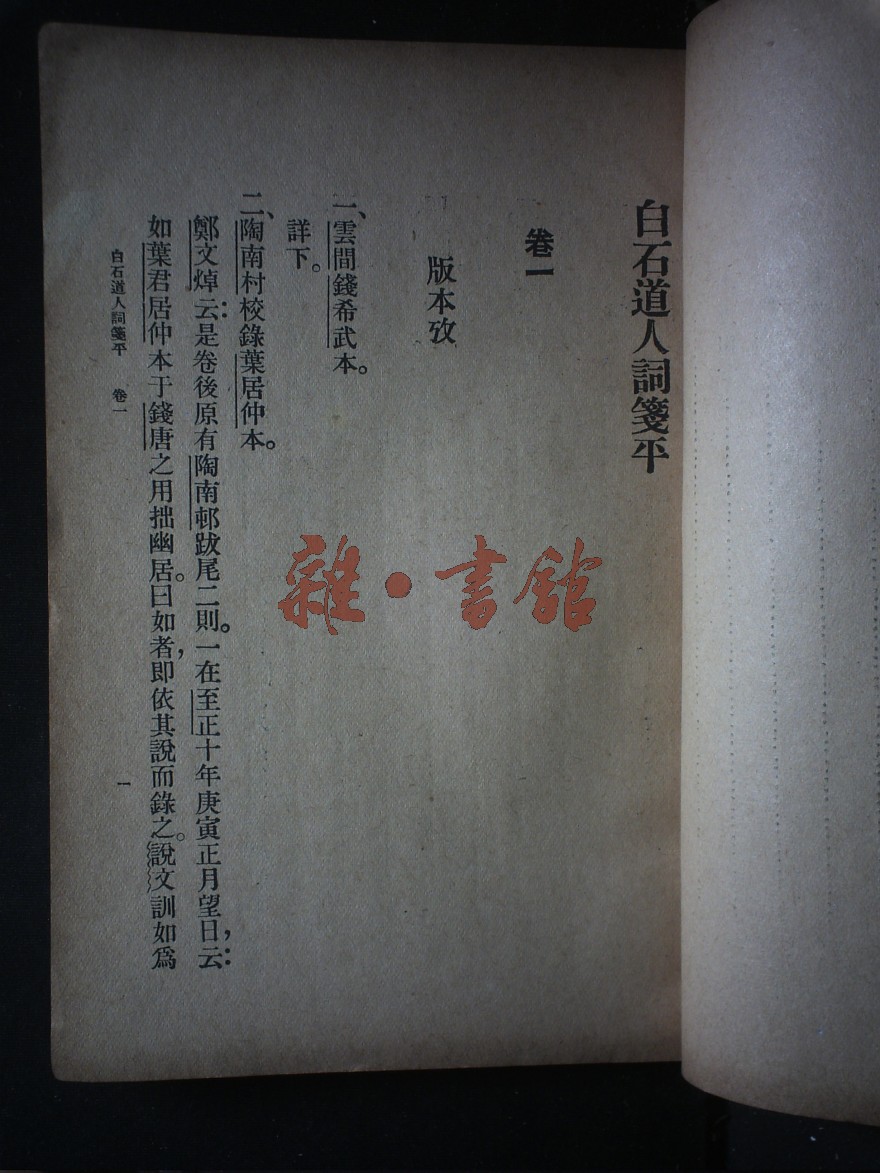 白石道人詞箋平
卷一
版本攷
一、雲間錢希武本。
詳下。
二、陶南村校錄葉居仲本。
鄭文焯云：是卷後原有陶南邨跋尾二則。一在至正十年庚寅正月望日，云：
如葉君居仲本于錢唐之用拙幽居。曰如者，即依其說而錄之。說文訓如爲
白石道人詞箋平 卷一
一
雜·書館